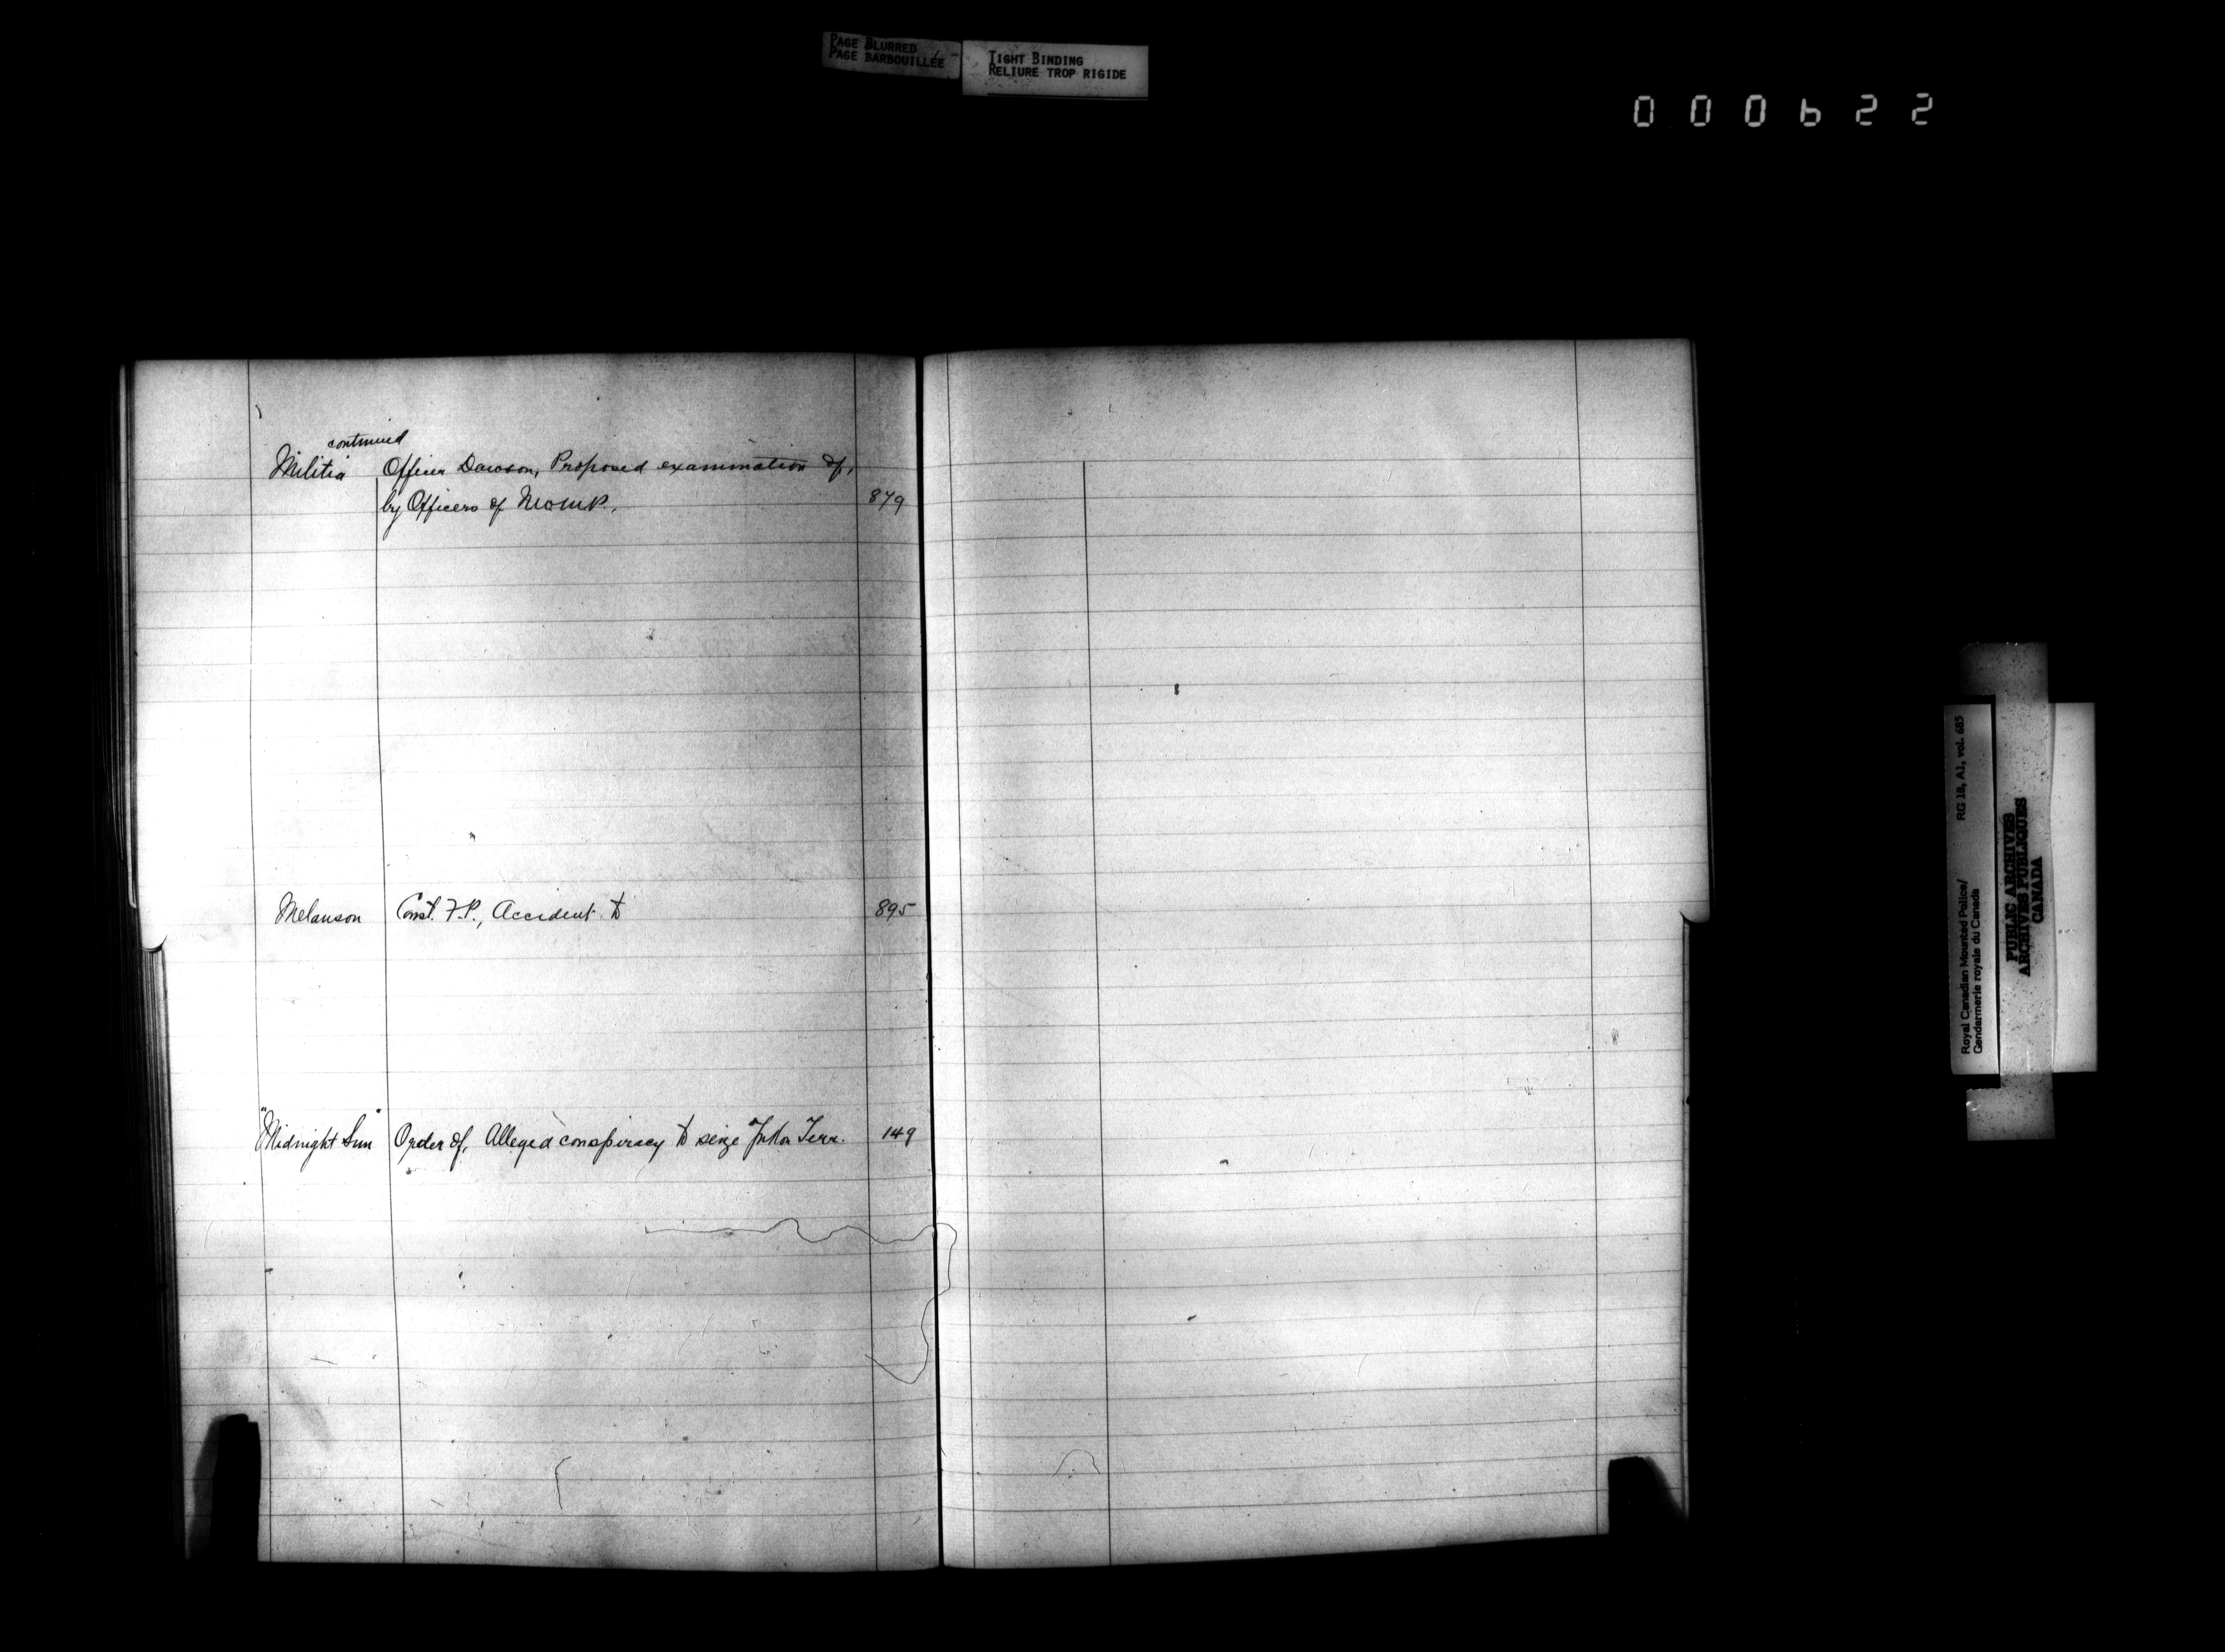 PAGE BLURRED
PAGE BARBOUILLÉE
TIGHT BINDING
RELIURE TROP RIGIDE
000622
continued
Militia Officer Dawson, Proposed examination of,
by Officers of N.W.M.P., 879
Melanson Const. F.P., Accident to 895
"Midnight Sun" Order of, Alleged conspiracy to seize Terr. 149
Royal Canadian Mounted Police/ RG 18, A1, vol. 685
Gendarmerie royale du Canada
PUBLIC ARCHIVES
ARCHIVES PUBLIQUES
CANADA